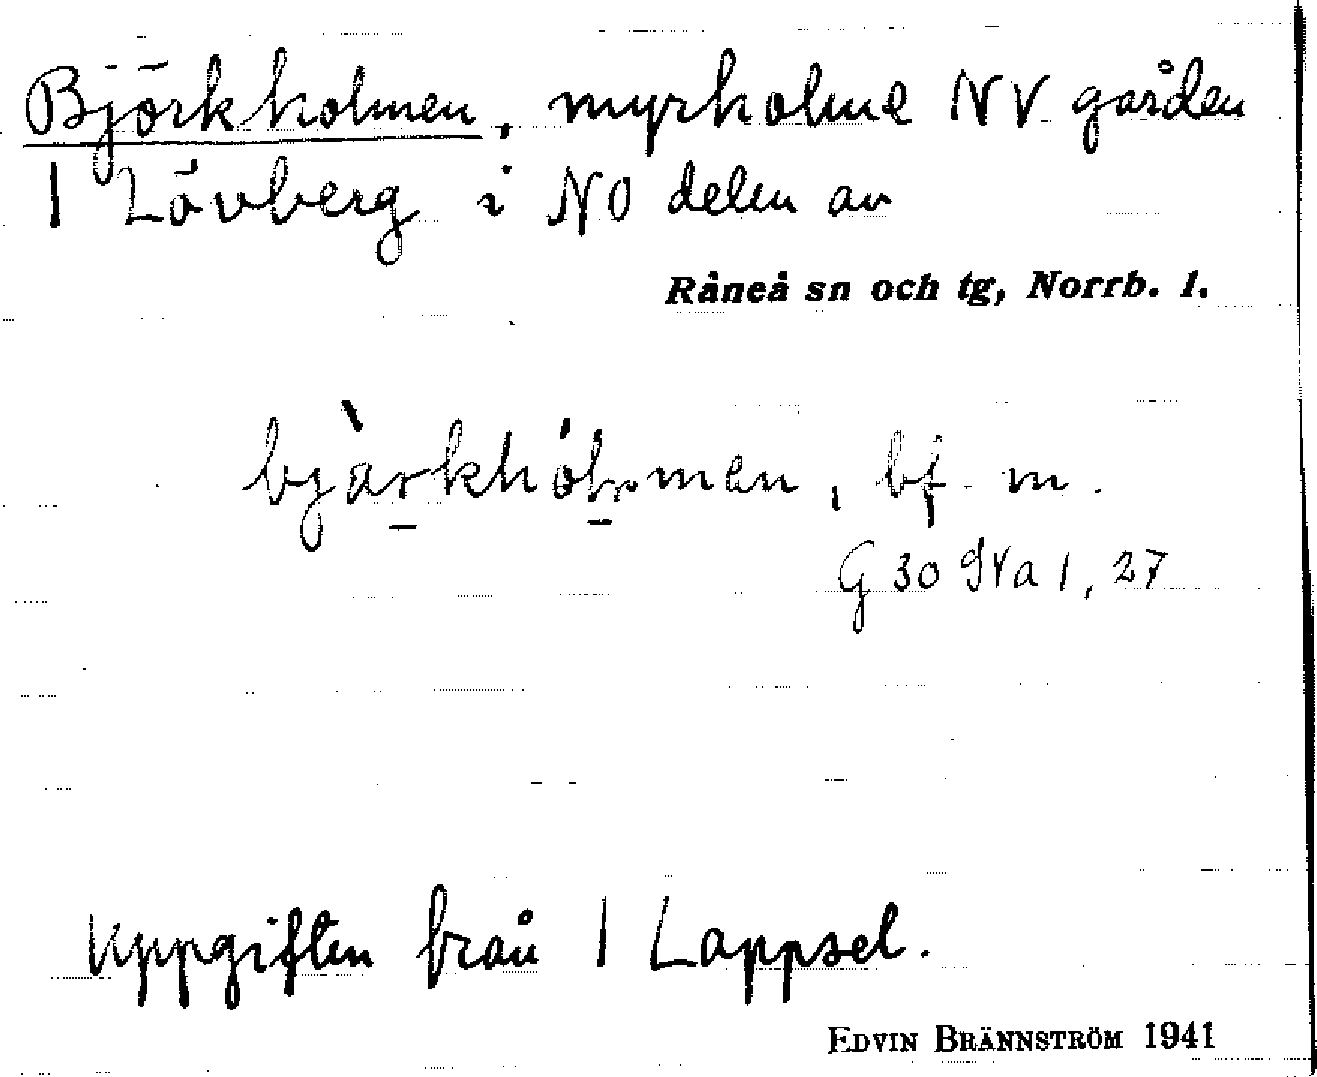 Björkholmen, myrholme NV gården
1 Lövberg i NO delen av
Råneå sn och tg, Norrb. l.
bjὰrkhólmen, bf. m.
G 30 IVa 1, 27
Uppgiften från 1 Lappsel.
EDVIN BRÄNNSTRÖM 1941